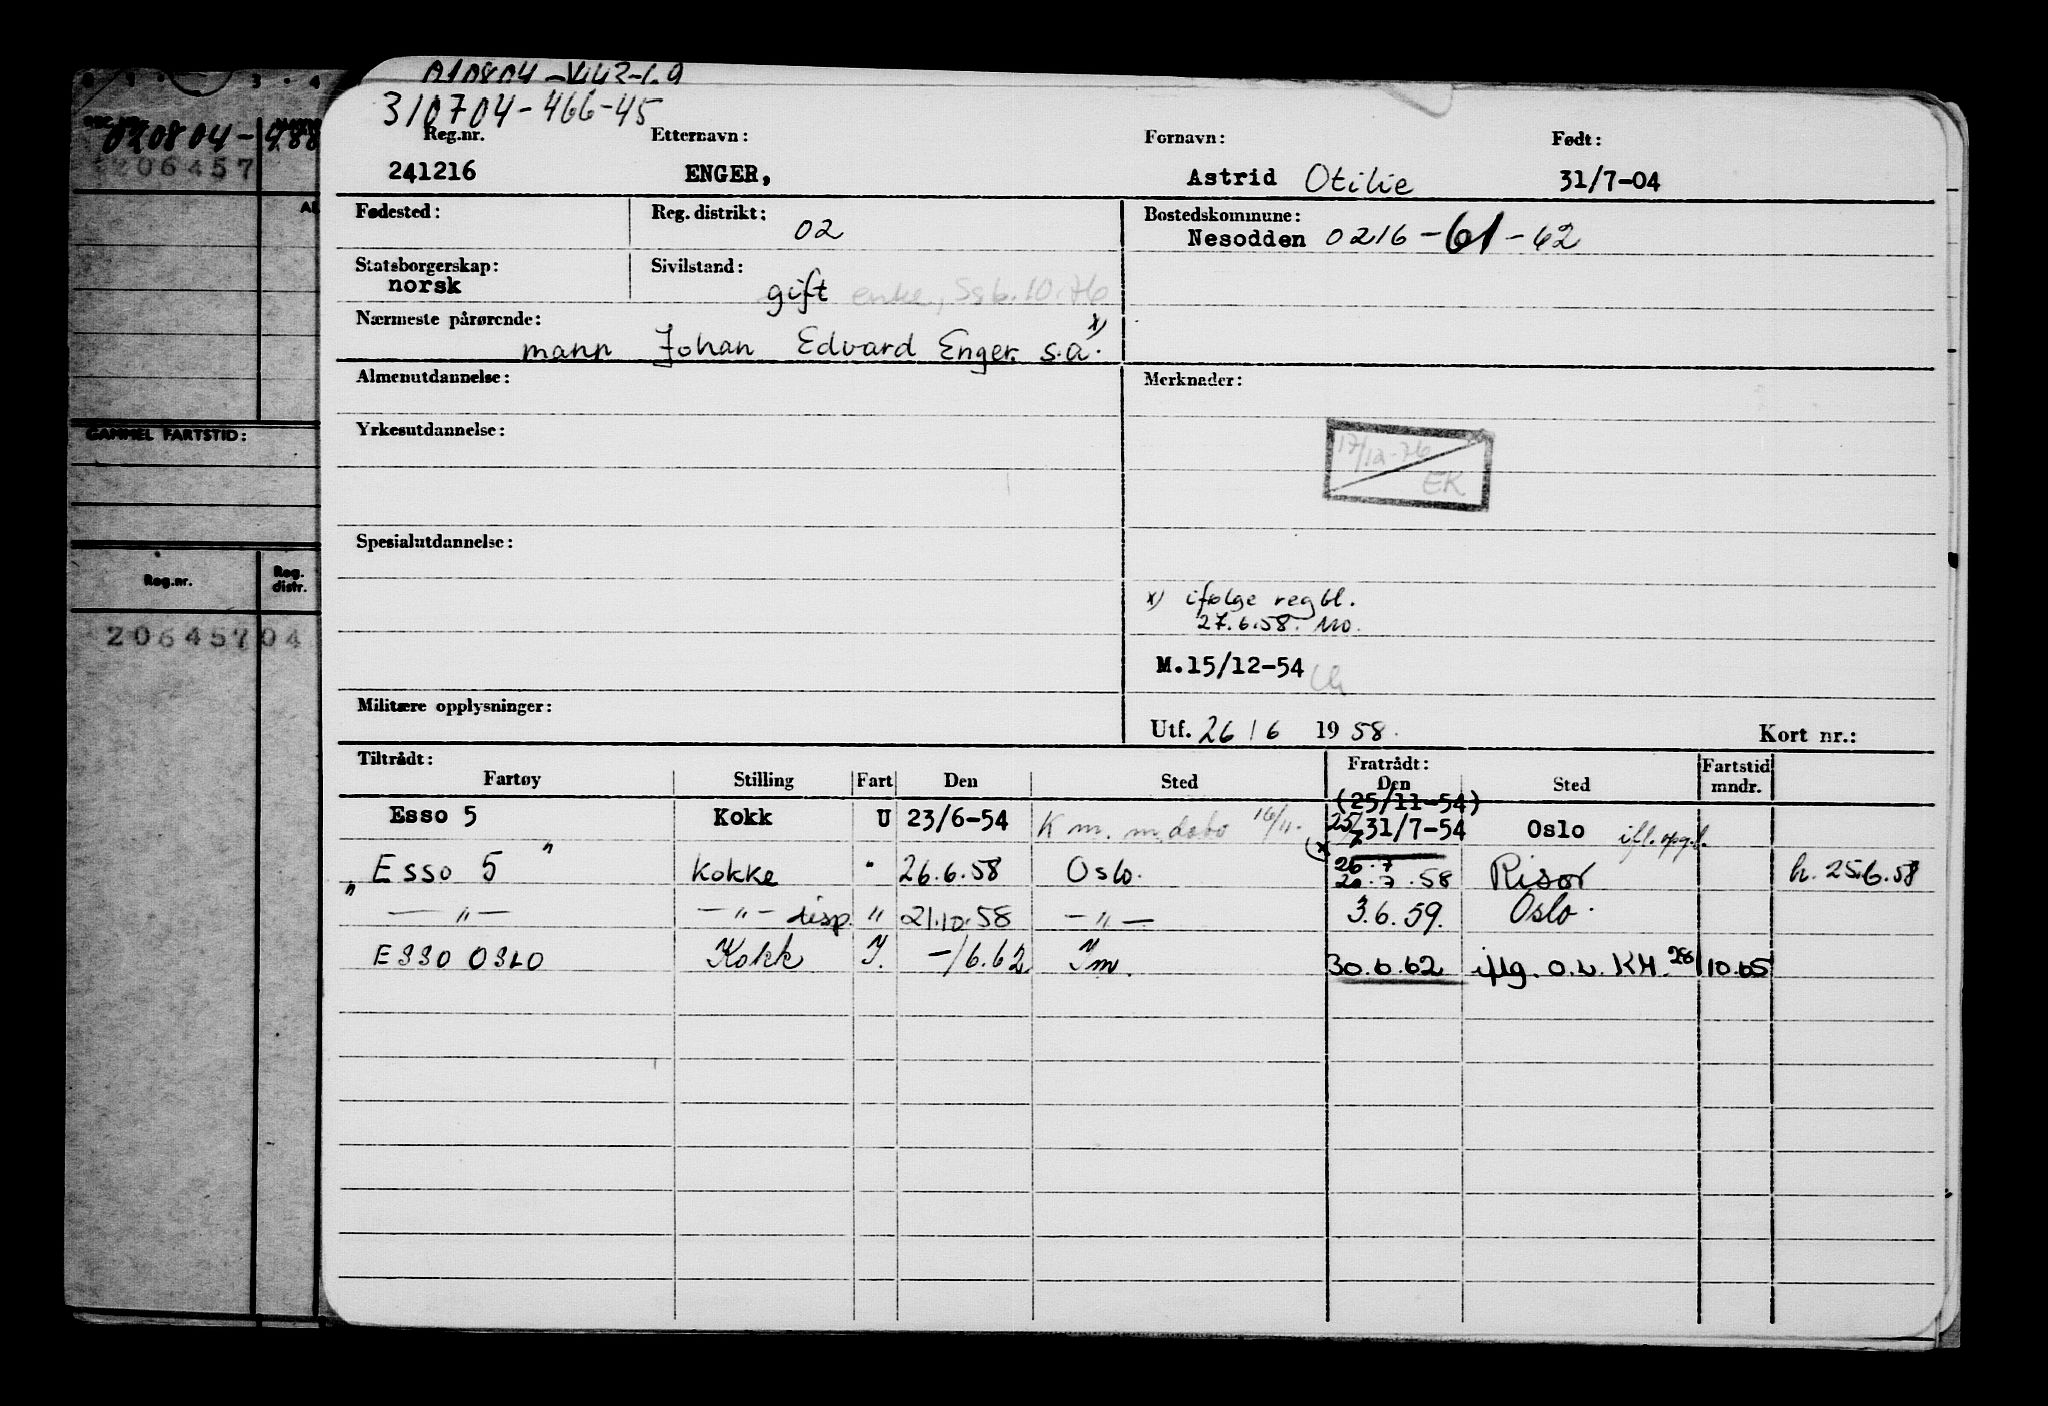 310704-466-45
020804-988
206457
Reg.nr. Etternavn: Fornavn: Født:
241216 ENGER, Astrid Otilie 31/7-04
Fødested: Reg. distrikt: 02 Bostedskommune:
Nesodden 0216-61-62
Statsborgerskap: norsk Sivilstand: gift enke, S 96.10.76
Nærmeste pårørende:
mann Johan Edvard Enger s.a. x)
Almenutdannelse: Merknader:
GAMMEL FARTSTID:
Yrkesutdannelse:
17/12-76
EK
Spesialutdannelse:
Reg.nr. Reg. distr.
206457 04
x) ifølge regbl.
27.6.58. Mo.
M.15/12-54
Militære opplysninger:
Utf. 26/6 1958. Kort nr.:
Tiltrådt: Fratrådt: Fartstid
Fartøy Stilling Fart Den Sted Den Sted mndr.
(25/11-54)
Esso 5 Kokk U 23/6-54 K m. m. 16/11. 25/7 31/7-54 Oslo
"Esso 5" Kokke " 26.6.58 Oslo. 26.7 26.7.58 Risør h. 25.6.58
— " — — " — disp. " 21.10.58 — " — 3.6.59. Oslo.
ESSO OSLO Kokk I. -/6.62 Im. 30.6.62 iflg. o.u. KH. 28/10.65